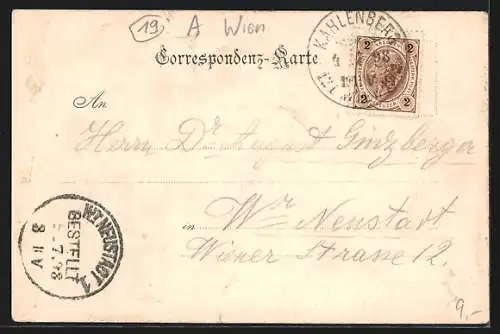 19 A Wien
Correspondenz-Karte
KAHLENBERG
2 2
2 2
An
Herrn Dr August Ginzberger
in Wr Neustadt
Wiener Strasse 12.
WR. NEUSTADT 1
BESTELLT
7.98
8 V
9,-